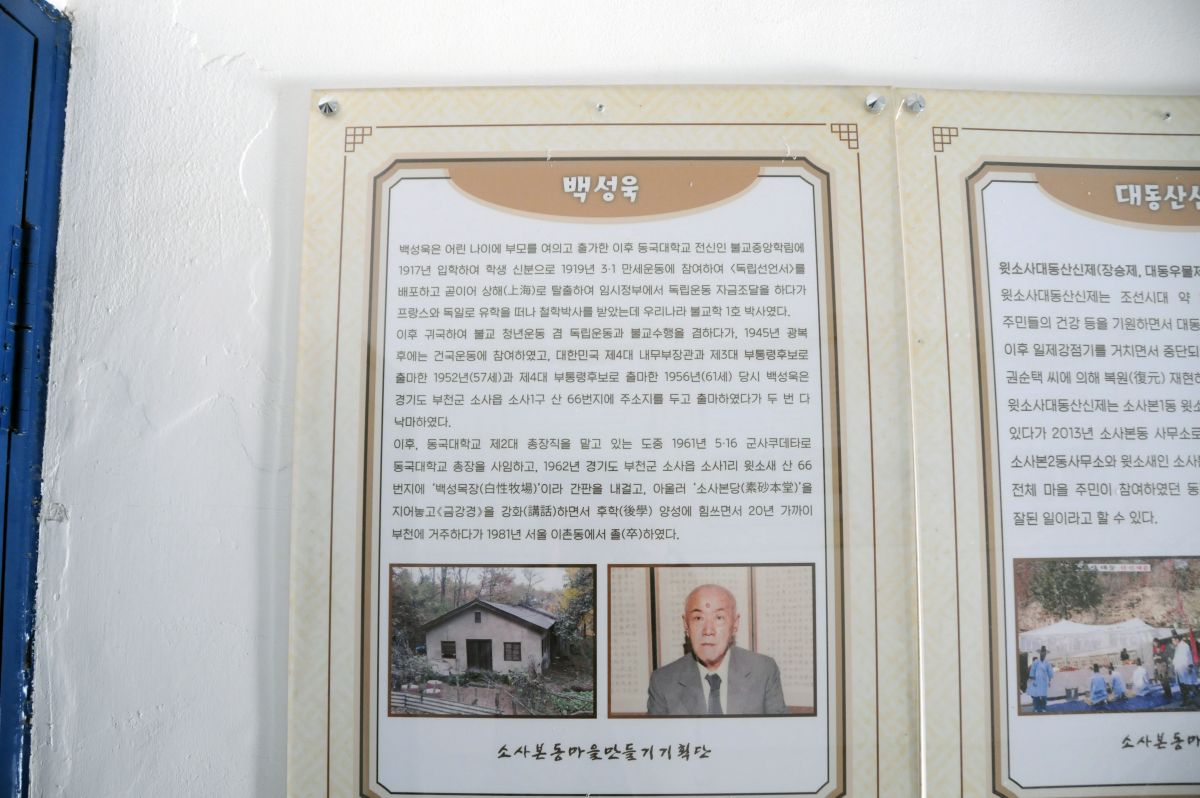 백성욱
백성욱은 어린 나이에 부모를 여의고 출가한 이후 동국대학교 전신인 불교중앙학림에
1917년 입학하여 학생 신분으로 1919년 3·1 만세운동에 참여하여 <독립선언서>를
배포하고 곧이어 상해(上海)로 탈출하여 임시정부에서 독립운동 자금조달을 하다가
프랑스와 독일로 유학을 떠나 철학박사를 받았는데 우리나라 불교학 1호 박사였다.
이후 귀국하여 불교 청년운동 겸 독립운동과 불교수행을 겸하다가, 1945년 광복
후에는 건국운동에 참여하였고, 대한민국 제4대 내무부장관과 제3대 부통령후보로
출마한 1952년(57세)과 제4대 부통령후보로 출마한 1956년(61세) 당시 백성욱은
경기도 부천군 소사읍 소사1구 산 66번지에 주소지를 두고 출마하였다가 두 번 다
낙마하였다.
이후, 동국대학교 제2대 총장직을 맡고 있는 도중 1961년 5·16 군사쿠데타로
동국대학교 총장을 사임하고, 1962년 경기도 부천군 소사읍 소사1리 윗소새 산 66
번지에 '백성목장(白性牧場)'이라 간판을 내걸고, 아울러 '소사본당(素砂本堂)'을
지어놓고《금강경》을 강화(講話)하면서 후학(後學) 양성에 힘쓰면서 20년 가까이
부천에 거주하다가 1981년 서울 이촌동에서 졸(卒)하였다.
소사본동마을만들기기획단
대동산신
윗소사대동산신제(장승제, 대동우물제
윗소사대동산신제는 조선시대 약
주민들의 건강 등을 기원하면서 대동
이후 일제강점기를 거치면서 중단되
권순택 씨에 의해 복원(復元) 재현하
윗소사대동산신제는 소사본1동 윗소
있다가 2013년 소사본동 사무소로
소사본2동사무소와 윗소새인 소사본
전체 마을 주민이 참여하였던 동
잘된 일이라고 할 수 있다.
소사본동마